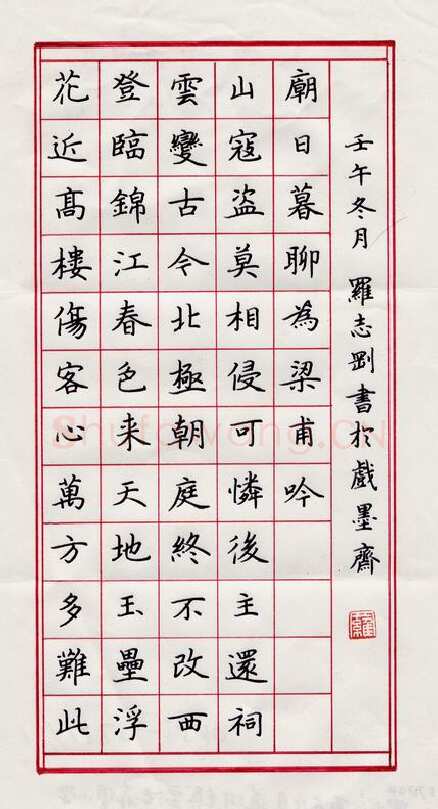 花近髙樓傷客心萬方多難此
登臨錦江春色来天地玉壘浮
雲變古今北極朝庭終不改西
山寇盜莫相侵可憐後主還祠
廟日暮聊為梁甫吟
壬午冬月 羅志剛書於戲墨齋
Shufawang.CN